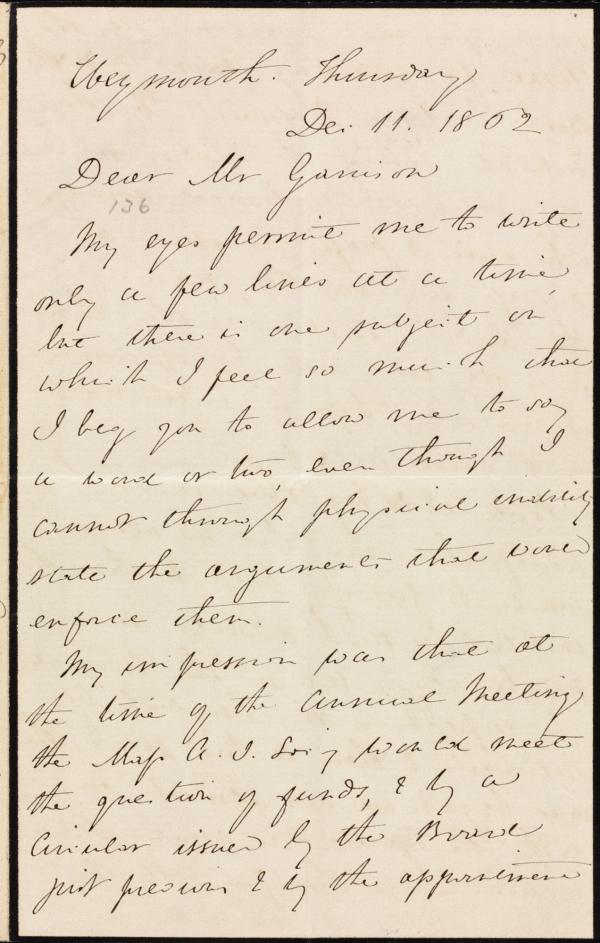 Weymouth. Thursday
Dec. 11. 1862
Dear Mr Garrison
136
My eyes permit me to write
only a few lines at a time,
but there is one subject on
which I feel so much that
I beg you to allow me to say
a word or two, even though I
cannot through physical inability
state the arguments that would
enforce them.
My impression was that at
the time of the Annual Meeting
the Mass A. S. Soc'y would meet
the question of funds, & by a
Circular issued by the Board
just previous & by the appointment